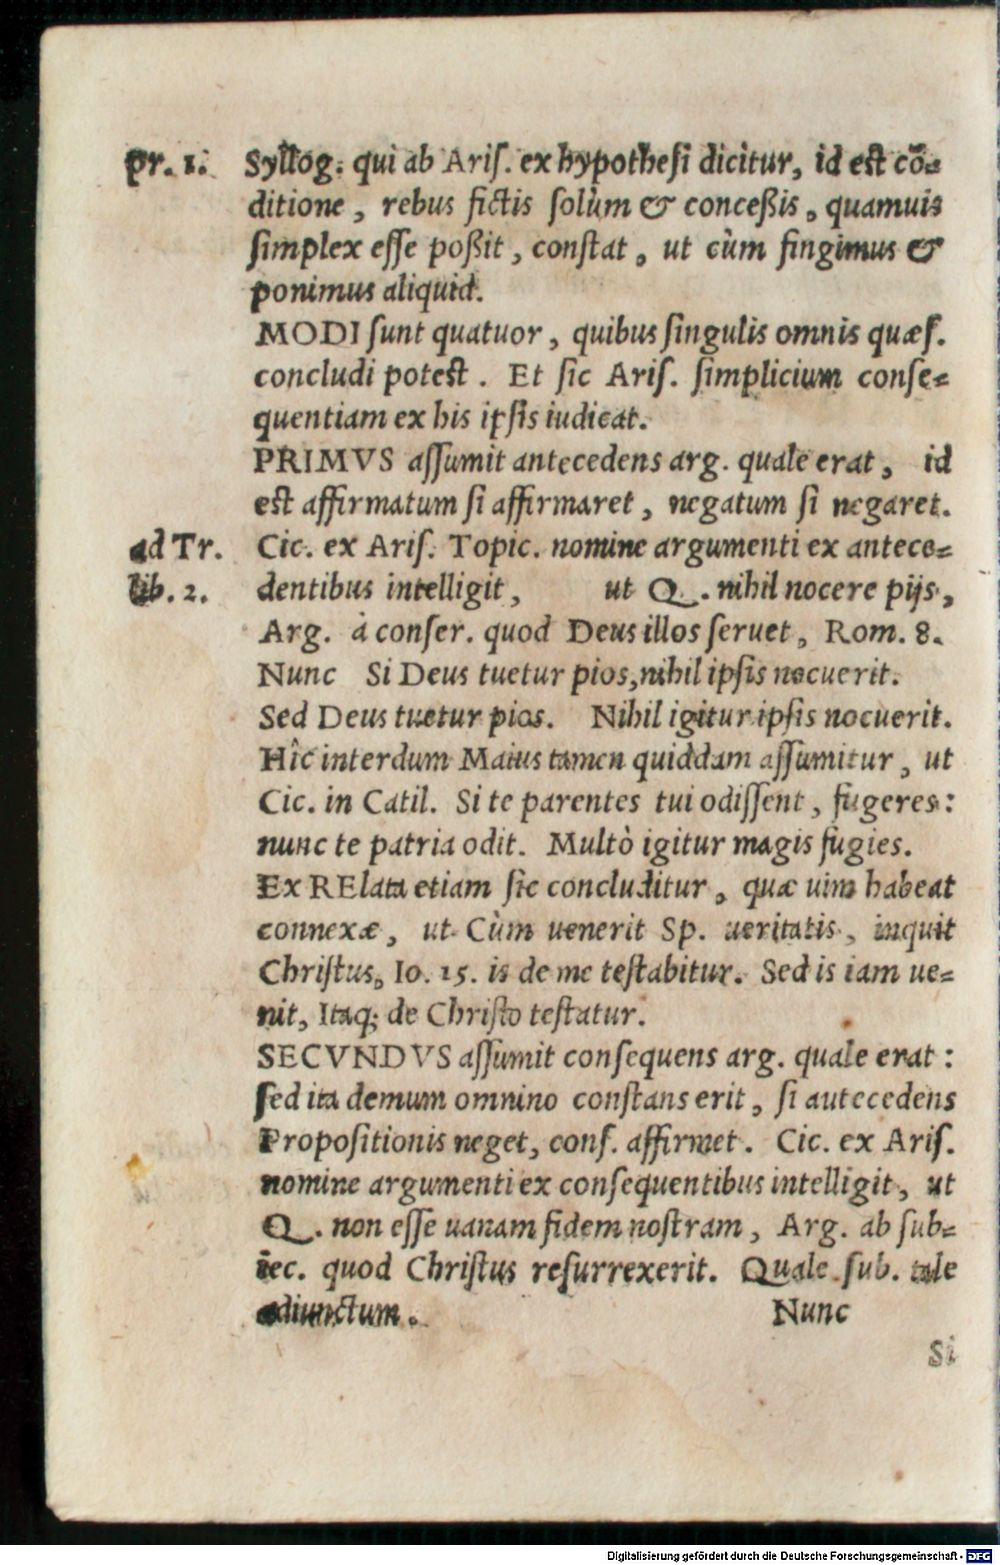 pr. 1. Syllog. qui ab Ariſ. ex hypotheſi dicitur, id est cõ-
ditione, rebus fictis ſolùm & conceßis, quamuis
ſimplex eſſe poßit, conſtat, ut cùm fingimus &
ponimus aliquid.
MODI ſunt quatuor, quibus ſingulis omnis quæſ.
concludi potest. Et ſic Ariſ. ſimplicium conſe-
quentiam ex his ipſis iudicat.
PRIMVS aſſumit antecedens arg. quale erat, id
est affirmatum ſi affirmaret, negatum ſi negaret.
ad Tr. Cic. ex Ariſ. Topic. nomine argumenti ex antece-
lib. 2. dentibus intelligit, ut Q. nihil nocere pijs,
Arg. à conſer. quod Deus illos ſeruet, Rom. 8.
Nunc Si Deus tuetur pios, nihil ipſis nocuerit.
Sed Deus tuetur pios. Nihil igitur ipſis nocuerit.
Hîc interdum Maius tamen quiddam aſſumitur, ut
Cic. in Catil. Si te parentes tui odiſſent, fugeres:
nunc te patria odit. Multò igitur magis fugies.
Ex RElata etiam ſic concluditur, quæ uim habeat
connexæ, ut Cùm uenerit Sp. ueritatis, inquit
Chriſtus, Io. 15. is de me teſtabitur. Sed is iam ue-
nit, Itaq; de Chriſto teſtatur.
SECVNDVS aſſumit conſequens arg. quale erat:
ſed ita demum omnino conſtans erit, ſi autecedens
Propoſitionis neget, conſ. affirmet. Cic. ex Ariſ.
nomine argumenti ex conſequentibus intelligit, ut
Q. non eſſe uanam fidem noſtram, Arg. ab ſub-
iec. quod Chriſtus reſurrexerit. Quale ſub. tale
adiunctum. Nunc
Si
Digitalisierung gefördert durch die Deutsche Forschungsgemeinschaft - DFG